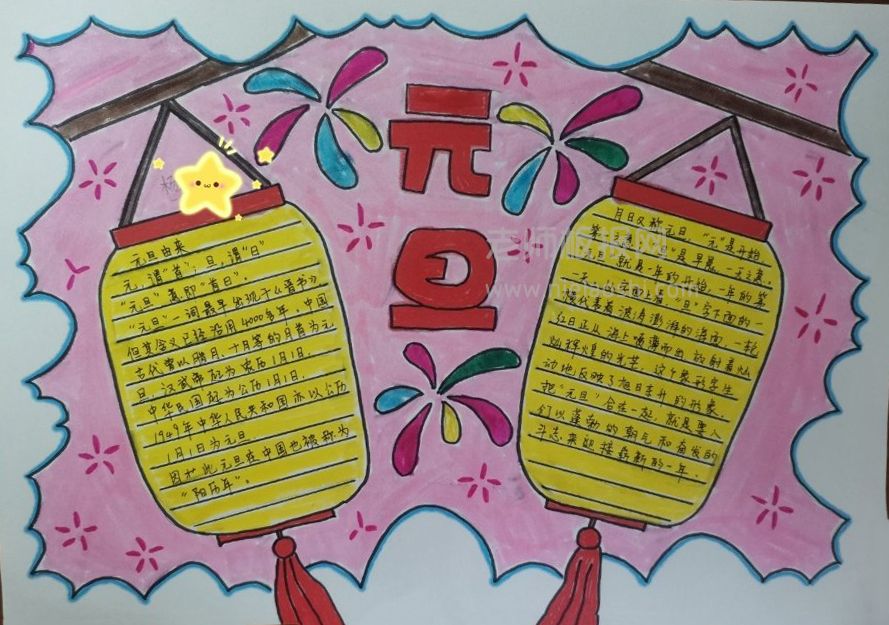 元旦
元旦由来
元,谓"首";旦,谓"日"
"元旦"意即"首日"。
"元旦"一词最早出现于《晋书》
但其含义已经沿用4000多年。中国
古代曾以腊月、十月等的月首为元
旦。汉武帝起为农历1月1日.
中华民国起为公历1月1日.
1949年中华人民共和国亦以公历
1月1日为元旦.
因此元旦在中国也被称为
"阳历年"。
月日又称元旦,"元"是开始
是早晨,一天之意.
元旦就是一年的开始,一年的第
一天。"旦"字下面的一
横代表着波涛澎湃的海面,一轮
红日正从海上喷薄而出放射着灿
灿辉煌的光芒,这个象形字生
动地反映了旭日东升的形象.
把"元旦"合在一起,就是要人
们以蓬勃的朝气和奋发的
斗志来迎接崭新的一年.
老师板报网